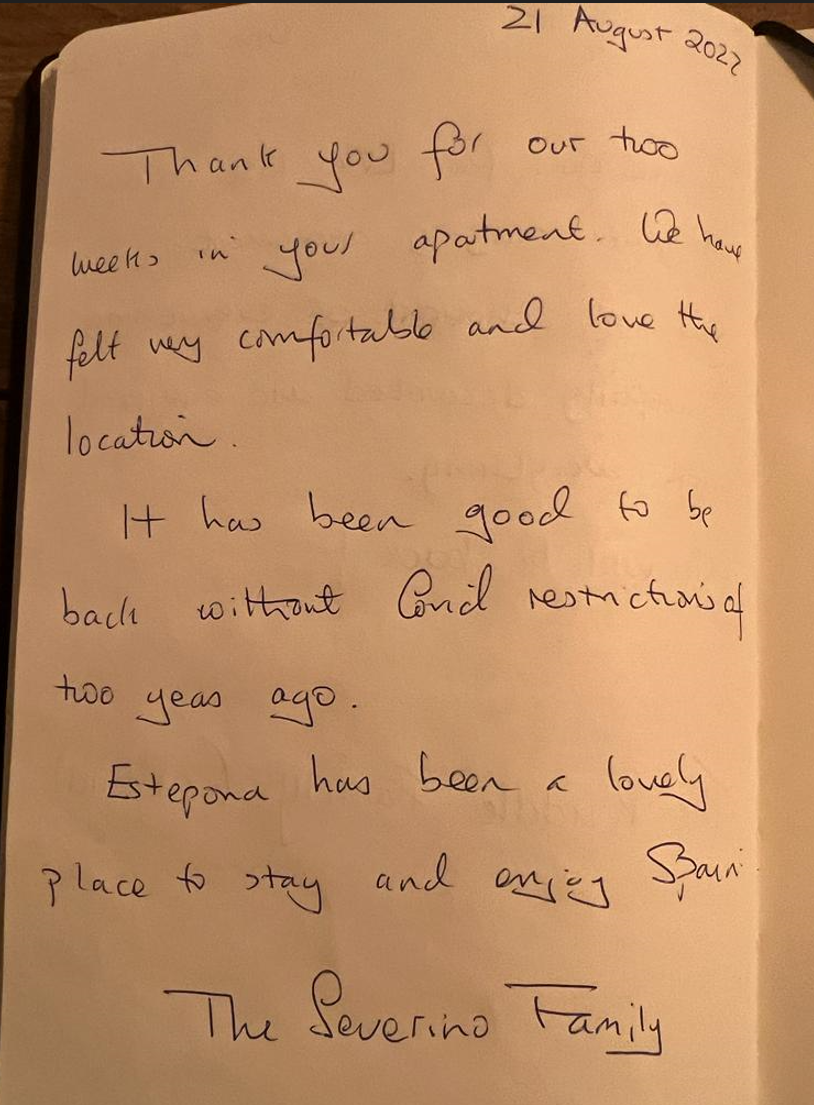 21 August 2022
Thank you for our two
weeks in your apatment. We have
felt very comfortable and love the
location.
It has been good to be
back without Covid restrictions of
two years ago.
Estepona has been a lovely
place to stay and enjoy Spain.
The Severino Family